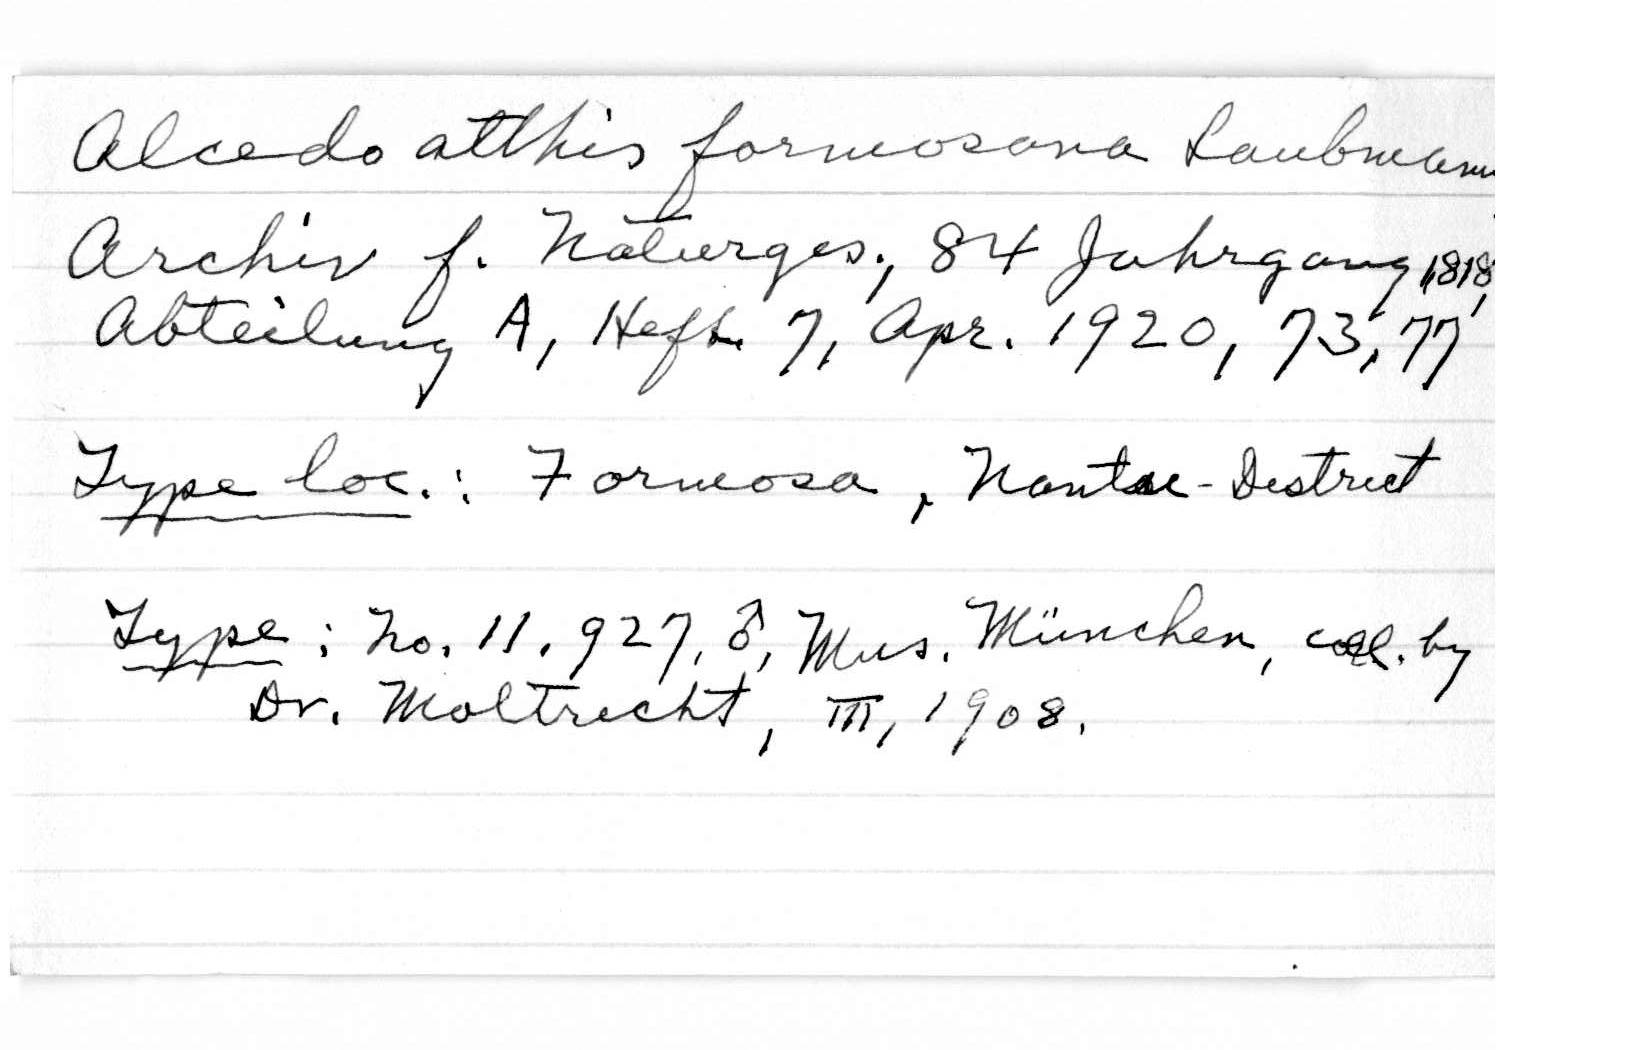 Alcedo atthis formosana Laubmann
Archiv f. Naturges., 84 Jahrgang, 1818,
Abteilung A, Heft. 7, Apr. 1920, 73, 77
Type loc.: Formosa, Nantoe-District
Type: No. 11.927, ♂, Mus. München, coll. by
Dr. Moltrecht, III, 1908.